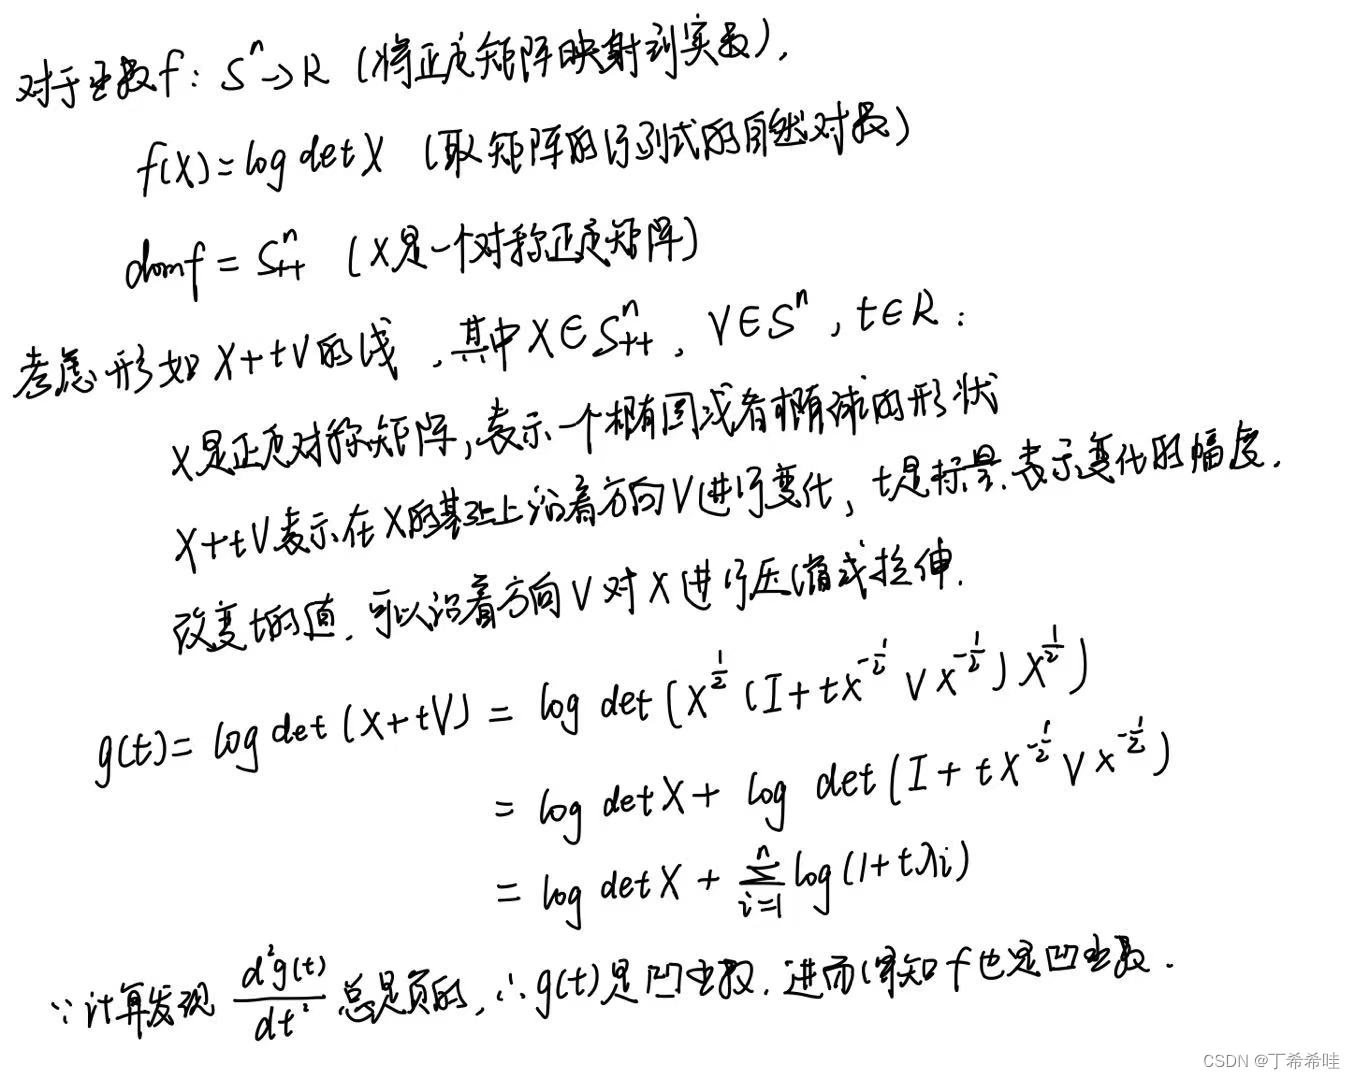 对于函数f: Sⁿ→R (将正定矩阵映射到实数),
f(X)=log det X (取矩阵的行列式的自然对数)
dom f = Sⁿ₊₊ (X是一个对称正定矩阵)
考虑形如X+tV的线,其中X∈Sⁿ₊₊, V∈Sⁿ, t∈R:
X是正定对称矩阵,表示一个椭圆或者椭球的形状
X+tV表示在X的基础上沿着方向V进行变化, t是标量,表示变化的幅度.
改变t的值,可以沿着方向V对X进行压缩或拉伸.
g(t)= log det (X+tV) = log det (X^{1/2} (I+tX^{-1/2} V X^{-1/2}) X^{1/2})
= log det X + log det (I + tX^{-1/2} V X^{-1/2})
= log det X + \sum_{i=1}^{n} log(1+tλi)
∵计算发现 d²g(t)/dt² 总是负的,∴g(t)是凹函数.进而得知f也是凹函数.
CSDN @丁希希哇